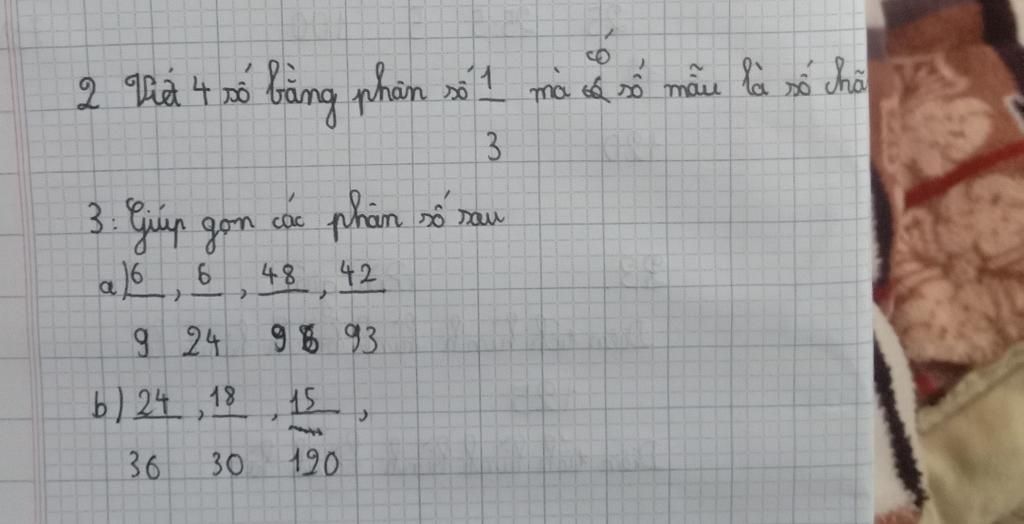 có
2 Viết 4 số bằng phân số 1 mà số mẫu là số chẵ
3
3: Giúp gọn các phân số sau
a) 6 , 6 , 48 , 42
9 24 96 93
b) 24 , 18 , 15 ,
36 30 120